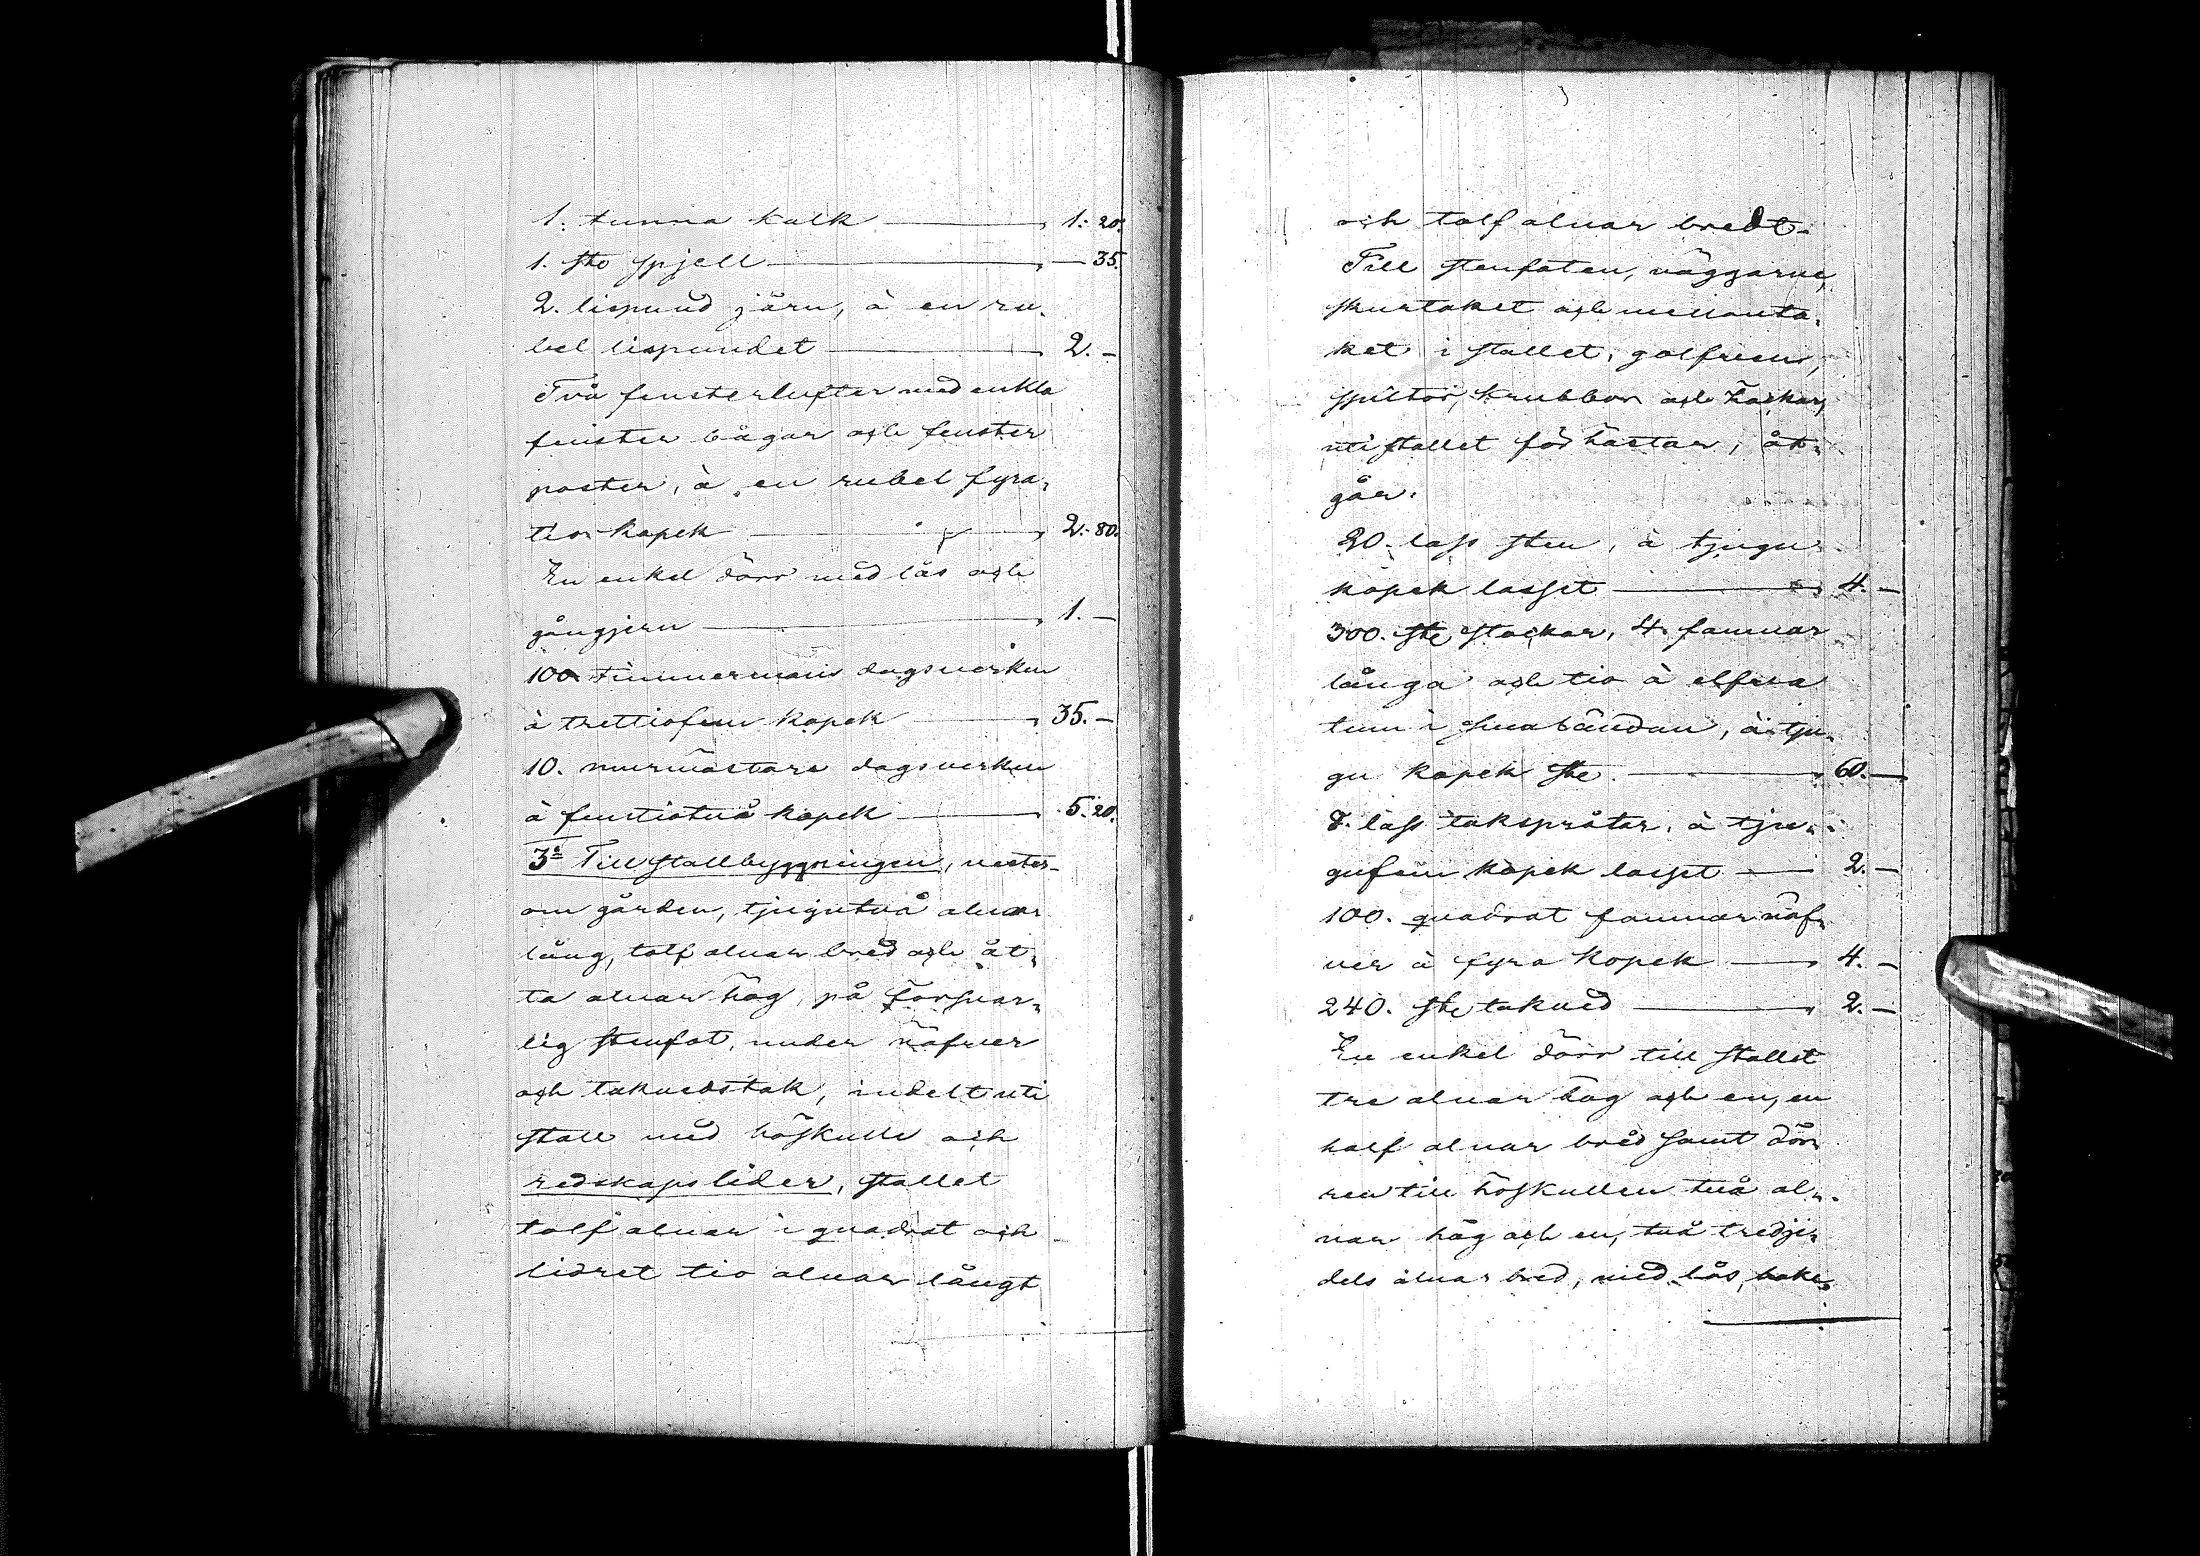 1. tunna kalk — " 1: 20.
1. stc spjell — " — 35.
2. lispund järn, à en ru-
bel lispundet — " 2. —
Två fensterlufter med enkla
fenster bågar och fenster
poster, à en rubel fyra-
tio kopek — " 2: 80.
En enkel dörr med lås och
gångjern — " 1. —
100 timmermans dagsverken
à trettiofem kopek — " 35. —
10. murmästare dagsverken
à femtiotvå kopek — " 5. 20.
3:o Till stallbyggningen, vester-
om gården, tjugutvå alnar
lång, tolf alnar bred och åt-
ta alnar hög, på försvar-
lig stenfot, under näfver
och takvedstak, indelt uti
stall med höskulle och
redskapslider, stallet
tolf alnar i quadrat och
lidret tio alnar långt
och tolf alnar bredt.
Till stenfoten, väggarne,
skurtaket och mellanta-
ket i stallet, golfven,
spiltor, krubbor och häckar,
uti stallet för hästar, åt-
går.
20. lass sten, à tjugu
kopek lasset — " 4. —
300. stc stockar, 4. famnar
långa och tio à elfva
tum i smabändan, à tju-
gu kopek stc. — " 60. —
8. lass taksprötar, à tju-
gufem kopek lasset — 2. —
100. quadrat famnar näf-
ver à fyra kopek — " 4. —
240. stc takved — " 2. —
En enkel dörr till stallet
tre alnar hög och en, en
half alnar bred samt dör-
ren till höskullen två al-
nar hög och en, två tredje-
dels alnar bred, med lås, hake